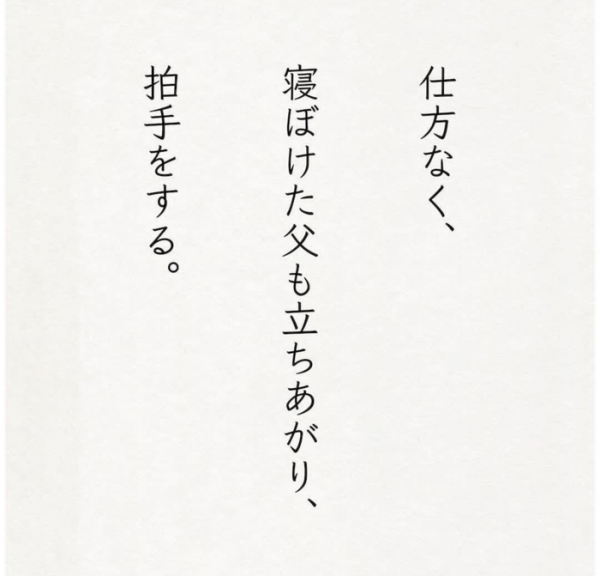 仕方なく、
寝ぼけた父も立ちあがり、
拍手をする。